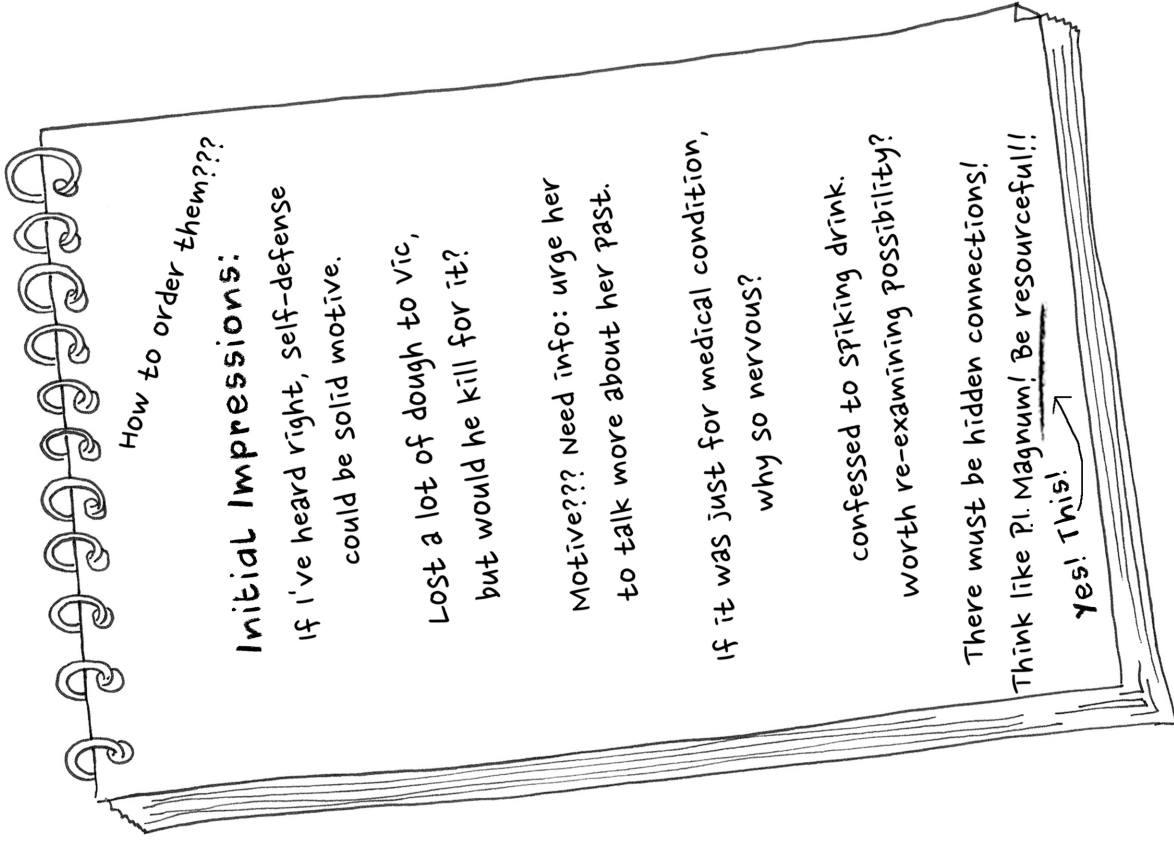 How to order them???
Initial Impressions:
If I've heard right, self-defense
could be solid motive.
Lost a lot of dough to Vic,
but would he kill for it?
Motive??? Need info: urge her
to talk more about her past.
If it was just for medical condition,
why so nervous?
confessed to spiking drink.
worth re-examining possibility?
There must be hidden connections!
Think like P.I. Magnum! Be resourceful!!
Yes! This!